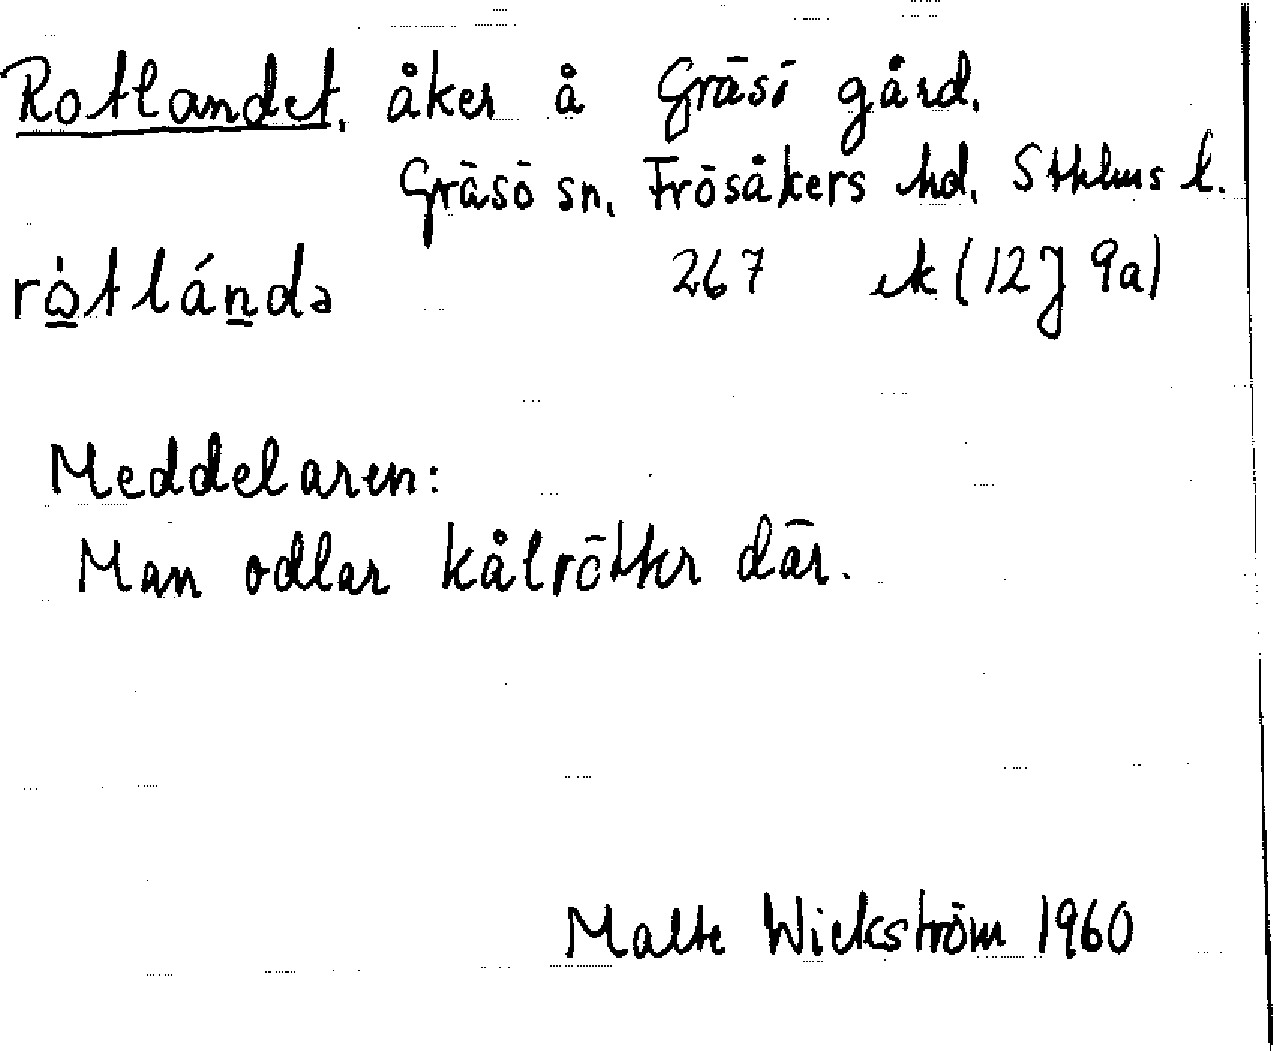 Rotlandet, åker å Gräsö gård,
Gräsö sn, Frösåkers hd, Sthlms l.
rò̱tláṉdə 267 ek (12J 9a)
Meddelaren:
Man odlar kålrötter där.
Malte Wickström 1960